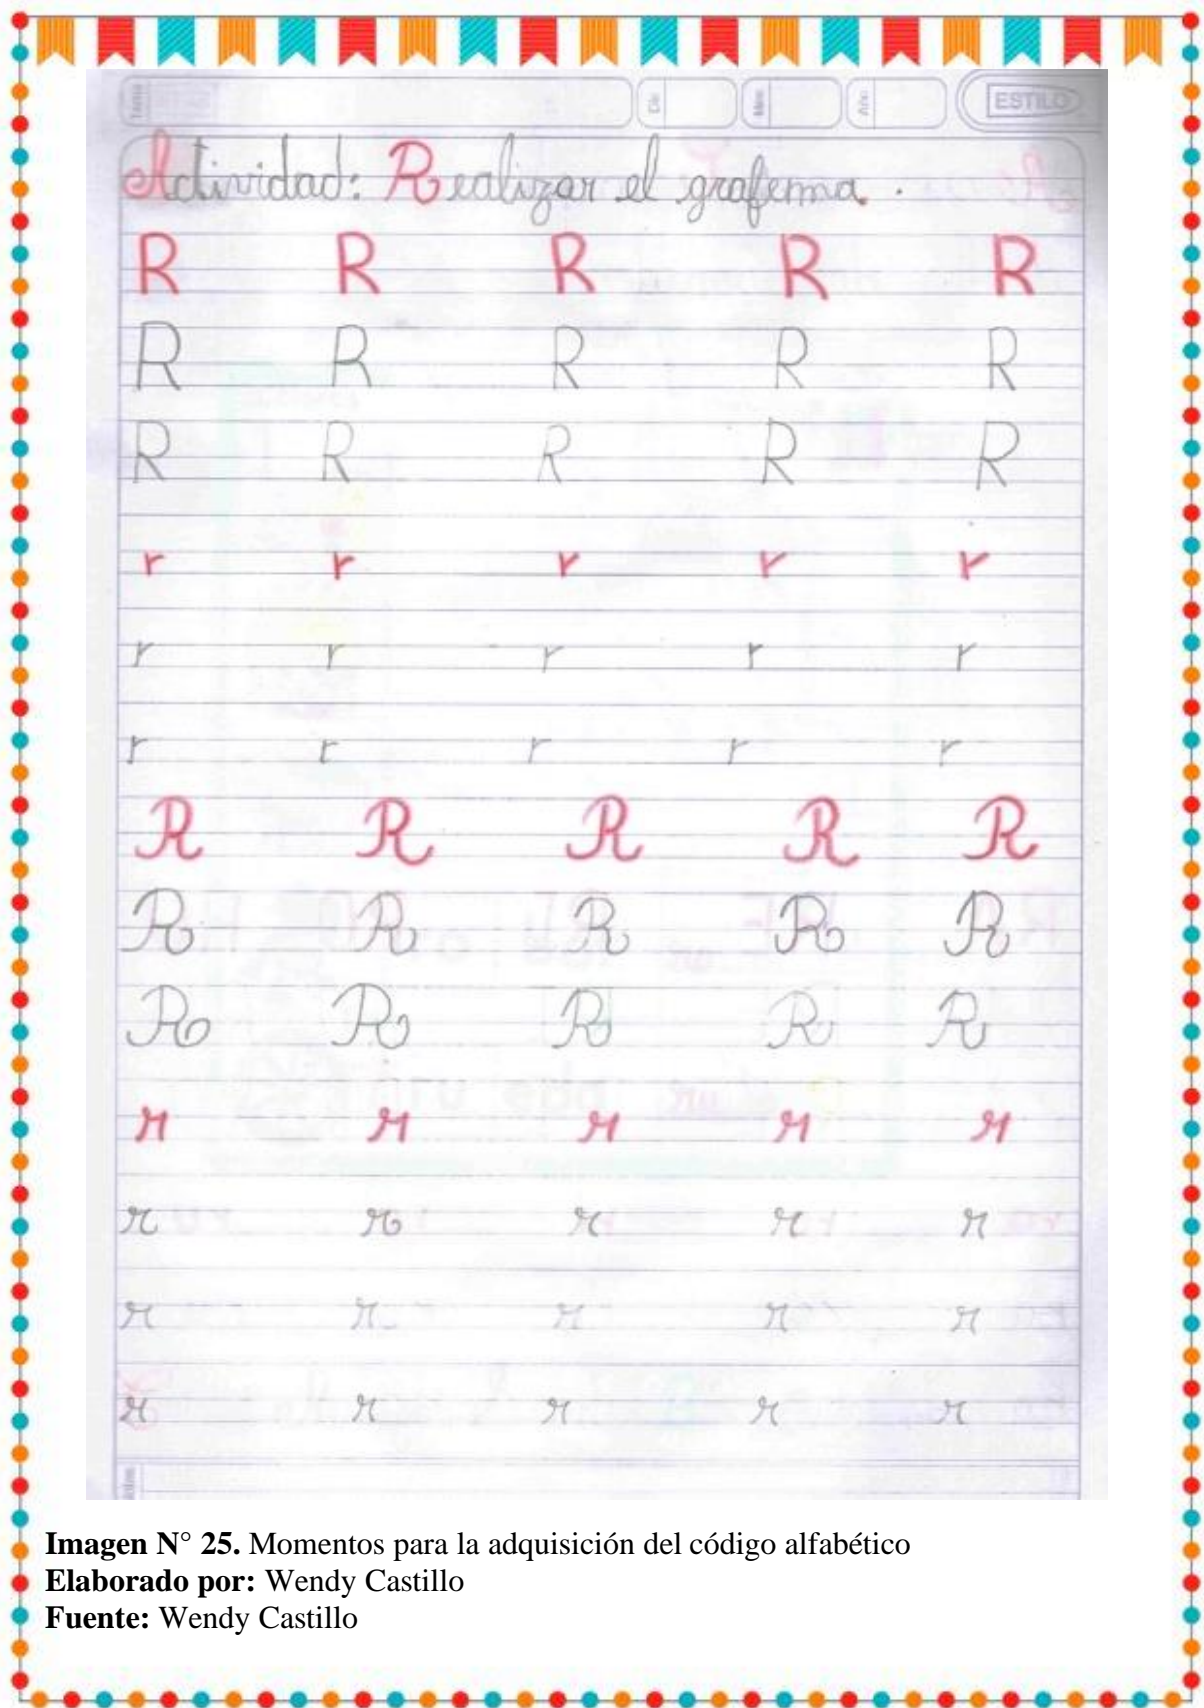 Tema:
Día:
Mes:
Año:
ESTILO
Actividad: Realizar el grafema.
R R R R R
R R R R R
R R R R R
r r r r r
r r r r r
r r r r r
R R R R R
R R R R R
R R R R R
r r r r r
r r r r r
r r r r r
r r r r r
Notas
Imagen N° 25. Momentos para la adquisición del código alfabético
Elaborado por: Wendy Castillo
Fuente: Wendy Castillo